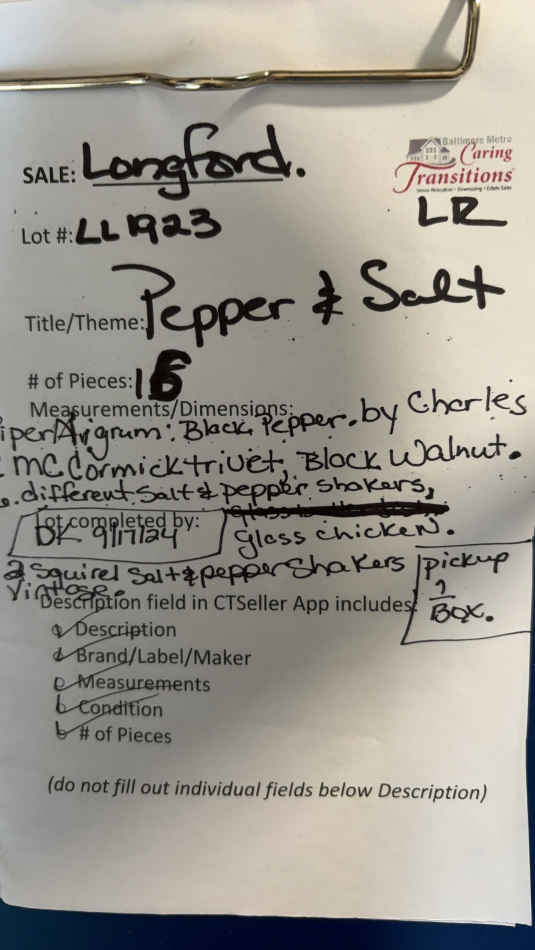 SALE: Longford.
Baltimore Metro
Caring
Transitions
Senior Relocation • Downsizing • Estate Sales
LR
Lot #: LL1923
Title/Theme: Pepper & Salt
# of Pieces: 16
Measurements/Dimensions:
iper Black Pepper. by Charles
McCormick trivet, Block Walnut.
different Salt & pepper shakers,
Lot completed by:
DK 9/17/24
glass chicken.
2 Squirel Salt & pepper Shakers
vintage.
pickup
1
Box.
Description field in CTSeller App includes:
Description
Brand/Label/Maker
Measurements
Condition
# of Pieces
(do not fill out individual fields below Description)